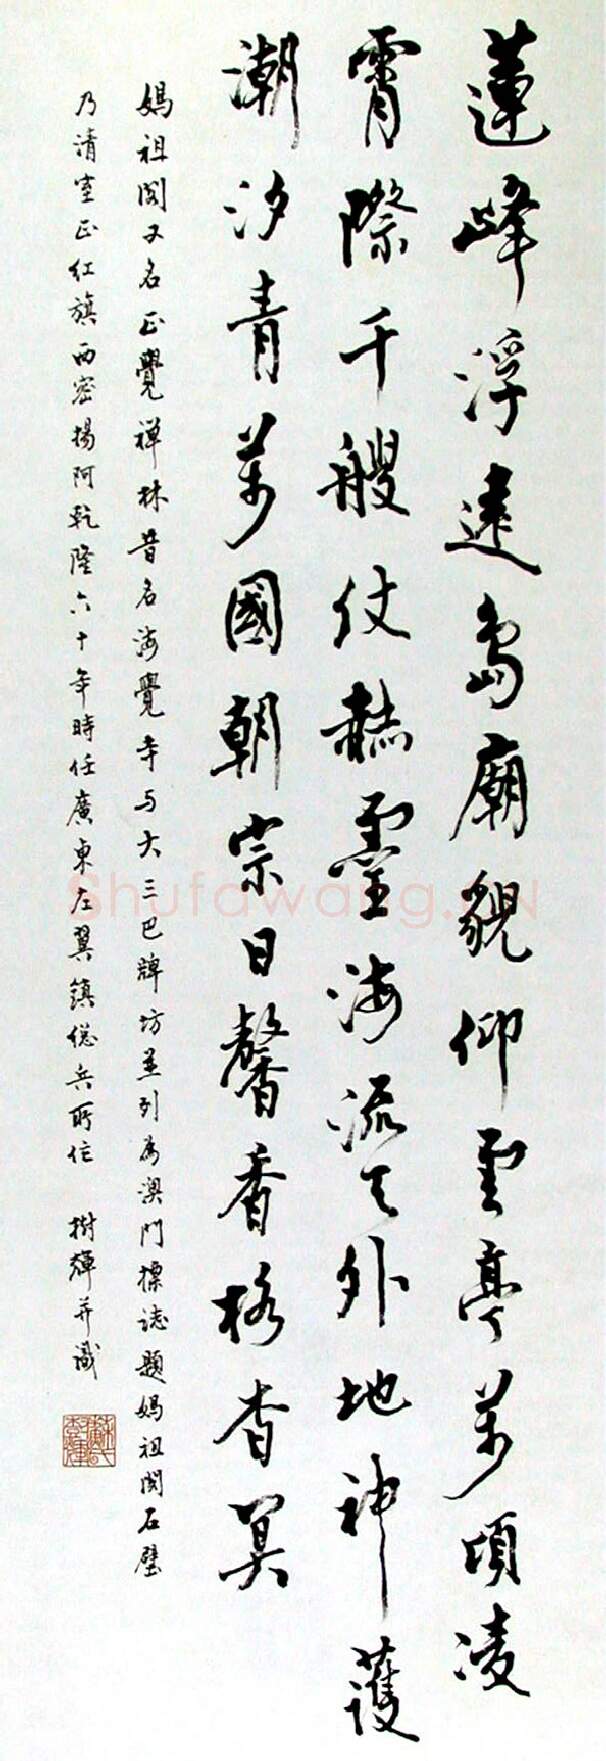 蓮峰浮遠島廟貌仰雲亭萬頃凌
霄際千艘仗赫靈海流天外地神護
潮汐青萬國朝宗日馨香格杳冥
媽祖閣又名正覺禅林昔名海覺寺与大三巴牌坊並列為澳門標誌題媽祖閣石壁
乃清室正红旗西密揚阿乾隆六十年時任廣東左翼鎮總兵所作 樹輝并識
Shufawang.CN